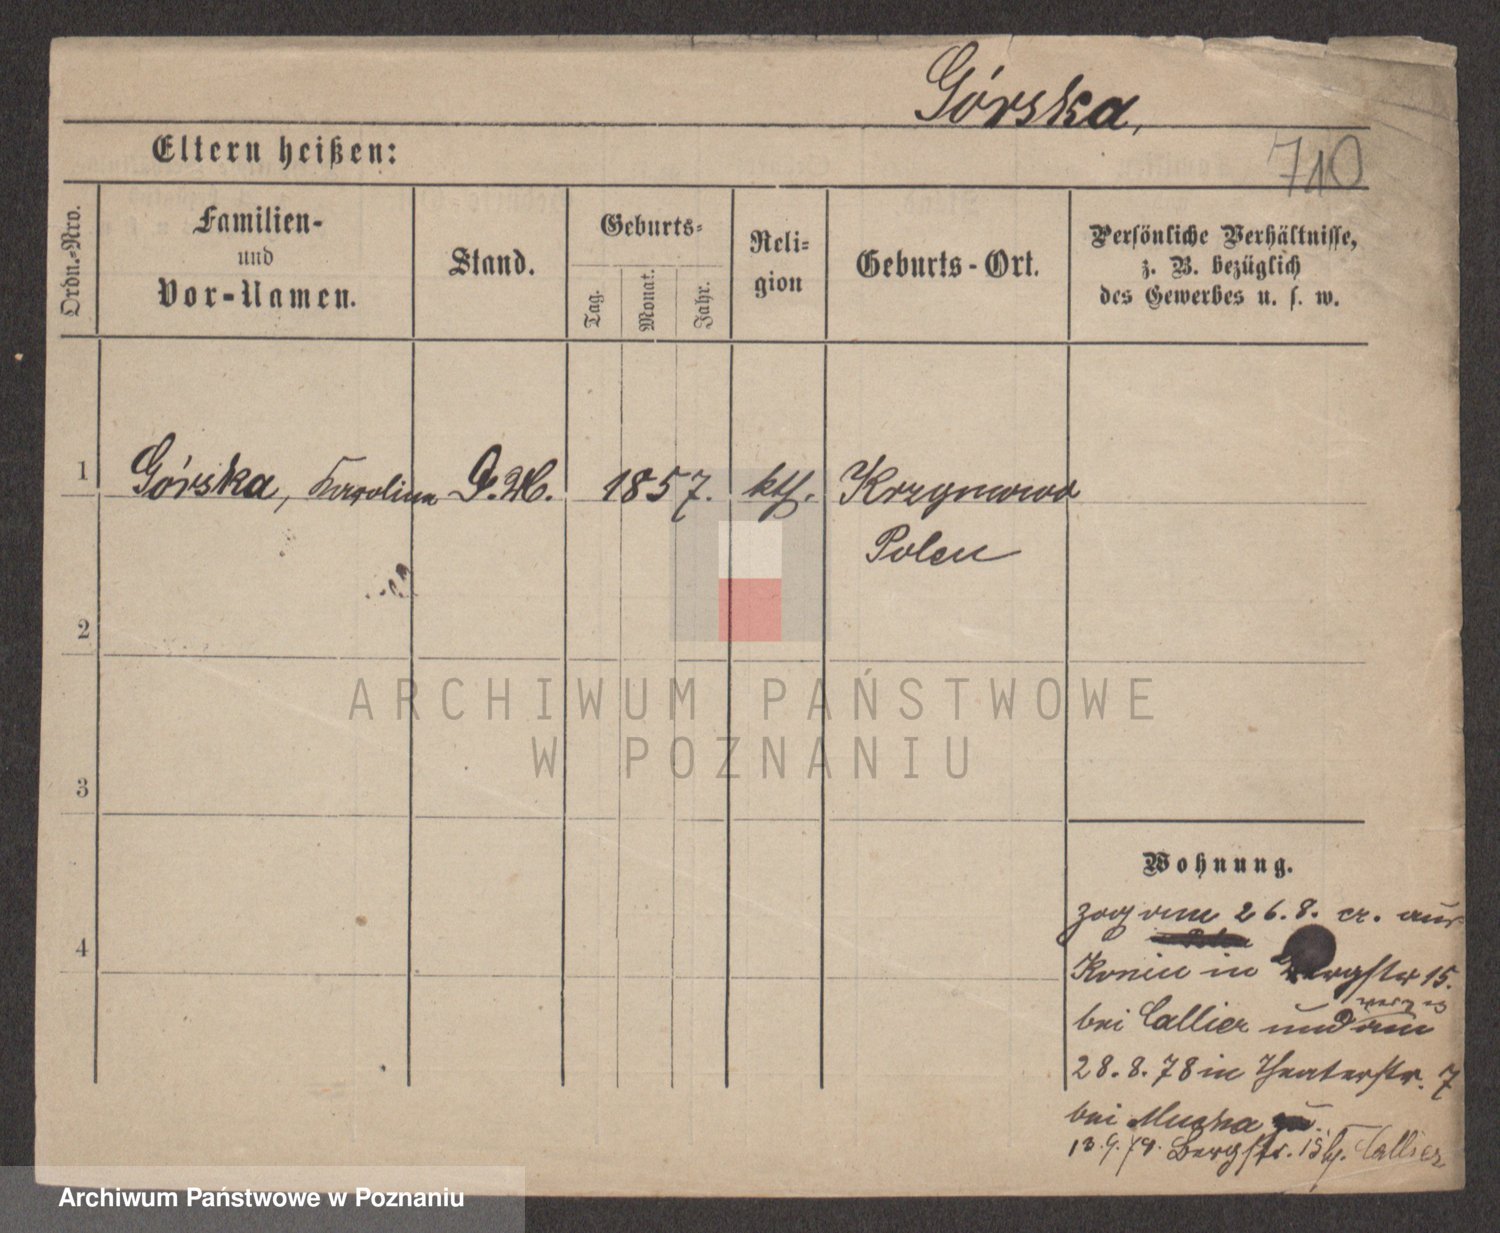 Górska,
710
Eltern heißen:
Ordn.-Nro.
Familien-
und
Vor-Namen.
Stand.
Geburts-
Tag.
Monat.
Jahr.
Reli-
gion
Geburts-Ort.
Persönliche Verhältnisse,
z. B. bezüglich
des Gewerbes u. s. w.
1
Górska, Karolina
D. M.
1857.
kth.
Krzymowo
Polen
2
3
4
ARCHIWUM PAŃSTWOWE
W POZNANIU
Wohnung.
zog am 26.8. cr. aus
Konin in Bergstr 15.
bei Callier und am
28.8.78 in Theaterstr. 7
bei Mucha
13.9.79. Bergstr. 15 b. Callier
Archiwum Państwowe w Poznaniu